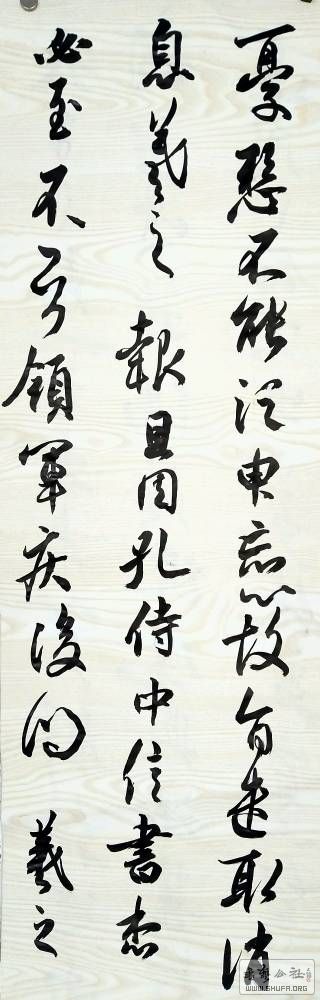 憂懸不能須臾忘心故旨遣取消
息羲之 報且因孔侍中信書想
必至不知領軍疾後問 羲之
WWW.SHUFA.ORG